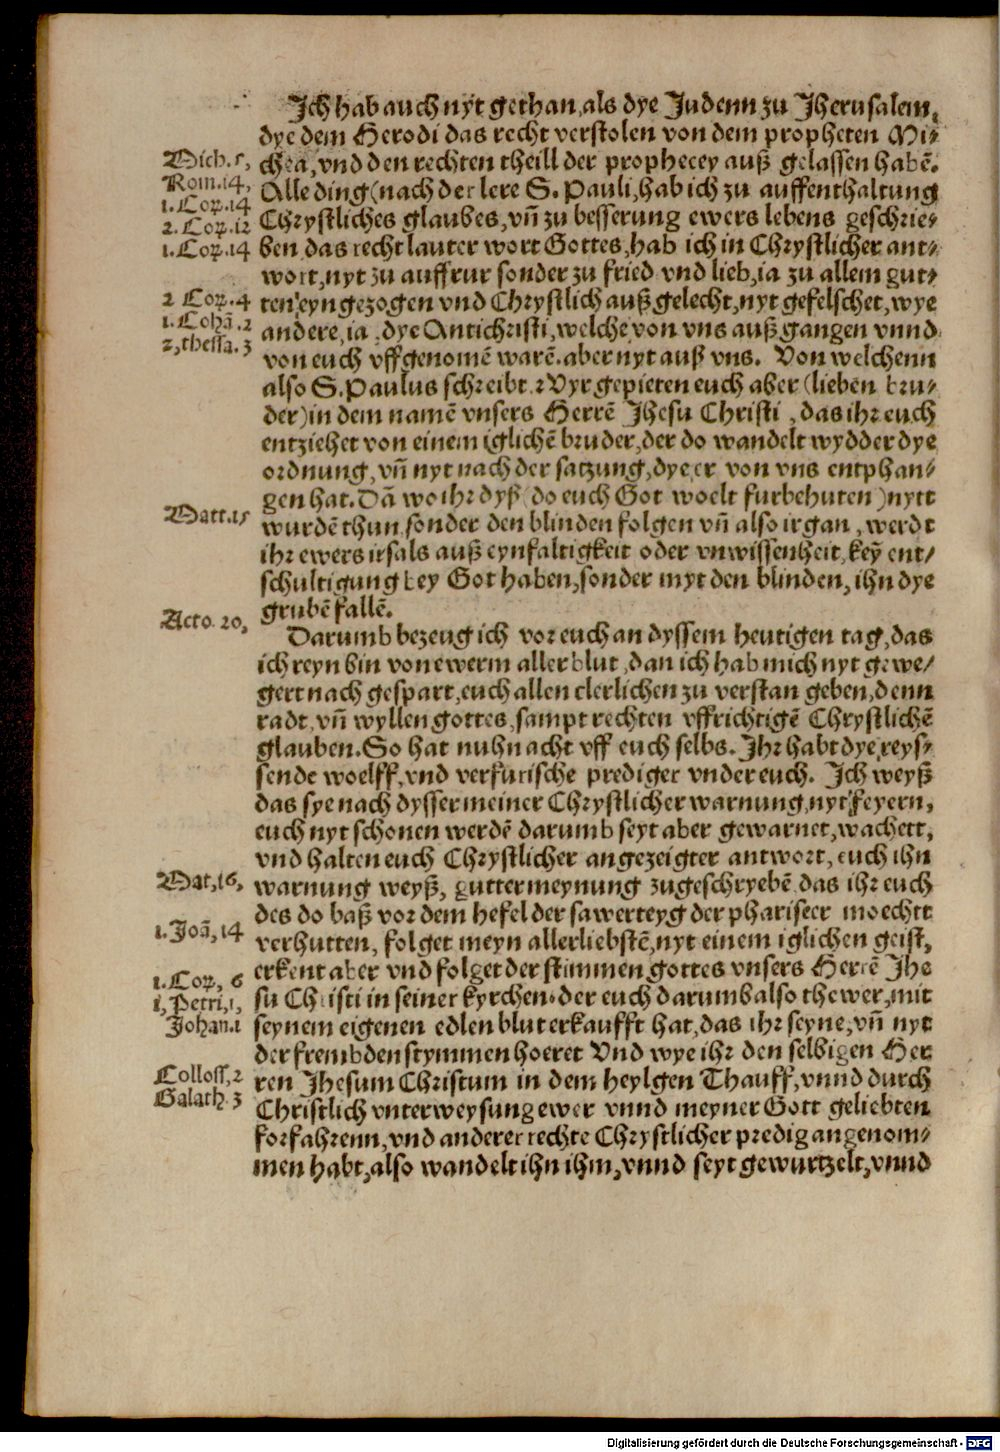 Ich hab auch nyt gethan, als dye Judenn zu Jherusalem,
dye dem Herodi das recht verstolen von dem propheten Mi-
Mich. 5,
chea, vnd den rechten theill der prophecey auß gelassen habē.
Rom. 14,
Alle ding (nach der lere S. Pauli, hab ich zu auffenthaltung
1. Cor. 14
Chrystliches glaubes, vn̄ zu besserung ewers lebens geschrie-
2. Cor. 12
1. Cor. 14
ben, das recht lauter wort Gottes, hab ich in Chrystlicher ant-
wort, nyt zu auffrur sonder zu fried vnd lieb, ia zu allem gut-
2 Cor. 4
ten eyngezogen vnd Chrystlich auß gelecht, nyt gefelschet, wye
1. Johā. 2
andere, ia, dye Antichristi, welche von vns auß gangen vnnd
2, thessa. 3
von euch vffgenomē warē. aber nyt auß vns. Von welchenn
also S. Paulus schreibt. Wyr gepieten euch aber (lieben bru-
der) in dem namē vnsers Herrē Jhesu Christi, das ihr euch
entziehet von einem iglichē bruder, der do wandelt wydder dye
ordnung, vn̄ nyt nach der satzung, dye er von vns entphan-
gen hat. Dā wo ihr dyß (do euch Got woelt furbehuten) nytt
Matt. 15
wurdē thun, sonder den blinden folgen vn̄ also irgan, werdt
ihr ewers irsals auß eynfaltigkeit oder vnwissenheit, keȳ ent-
schultigung bey Got haben, sonder myt den blinden, ihn dye
grubē fallē.
Acto. 20,
Darumb bezeug ich vor euch an dyssem heutigen tag, das
ich reyn bin von ewerm aller blut, dan ich hab mich nyt gewe-
gert nach gespart, euch allen clerlichen zu verstan geben, denn
radt, vn̄ wyllen gottes, sampt rechten vffrichtigē Chrystlichē
glauben. So hat nuhn acht vff euch selbs. Ihr habt dye reys-
sende woelff, vnd verfurische prediger vnder euch. Ich weyß
das sye nach dysser meiner Chrystlicher warnung, nyt feyern,
euch nyt schonen werdē darumb seyt aber gewarnet, wachett,
vnd halten euch Chrystlicher angezeigter antwort, euch ihn
Mat, 16,
warnung weyß, gutter meynung zugeschryebē das ihr euch
des do baß vor dem hefel der sawerteyg der phariseer moechtt
1. Joā, 14
verhutten, folget meyn allerliebstē, nyt einem iglichen geist,
erkent aber vnd folget der stimmen gottes vnsers Herrē Jhe
1. Cor, 6
su Christi in seiner kyrchen, der euch darumb also thewer, mit
1, Petri, 1,
Johan. 1
seynem eigenen edlen blut erkaufft hat, das ihr seyne, vn̄ nyt
der frembden stymmen hoeret Vnd wye ihr den selbigen Her
Colloss, 2
ren Jhesum Christum in dem heylgen Thauff, vnnd durch
Galath. 3
Christlich vnterweysung ewer vnnd meyner Gott geliebten
forfahrenn, vnd anderer rechte Chrystlicher predig angenom-
men habt, also wandelt ihn ihm, vnnd seyt gewurtzelt, vnnd
Digitalisierung gefördert durch die Deutsche Forschungsgemeinschaft - DFG